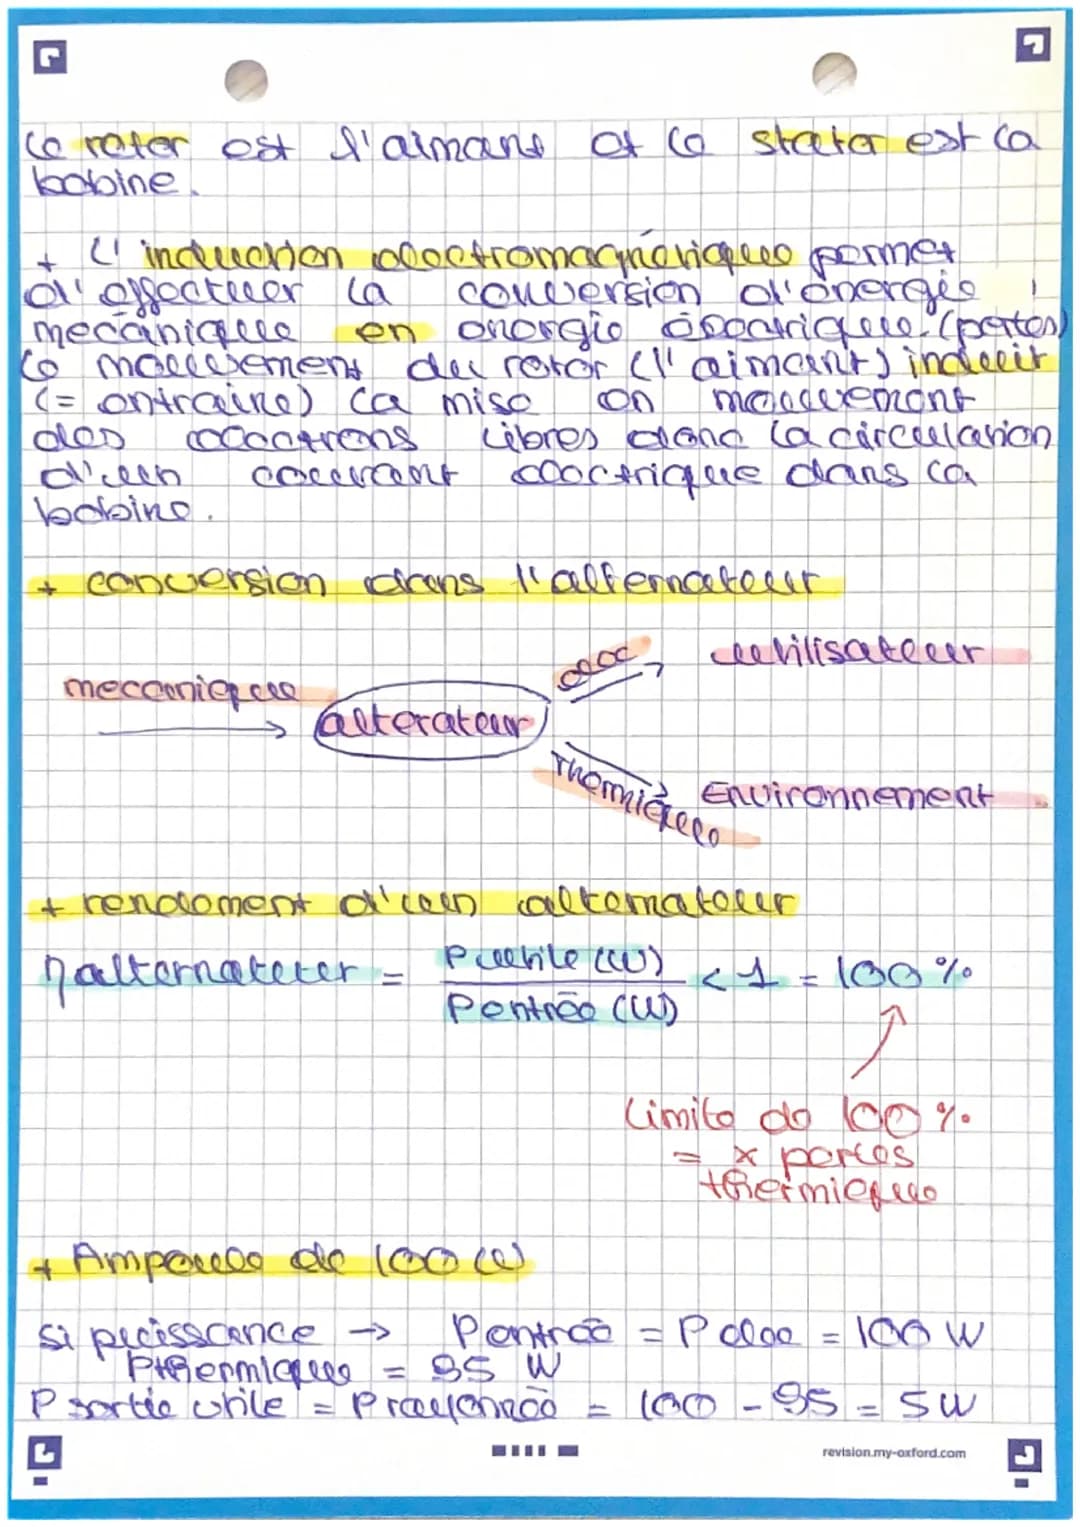 Le rotor est l'aimant et le stator est la
bobine.
+ L'induction electromagnétique permet
d'effectuer la conversion d'énergie
mécanique en énergie électrique. (pertes)
Le mouvement du rotor (l'aimant) induit
(= entraine) la mise en mouvement
des électrons libres donc la circulation
d'un courant électrique dans la
bobine.
+ conversion dans l'alternateur
elec utilisateur
mecanique
alterateur
Thermique Environnement
+ rendement d'un alternateur
ηalternateur = Putile (W) / Pentrée (W) < 1 = 100 %
Limite de 100 %
= x pertes
thermique
+ Ampoule de 100 W
si puissance → Pentrée = P elec = 100 W
Pthermique = 95 W
P sortie utile = P rayonnée = 100 - 95 = 5 W
revision.my-oxford.com